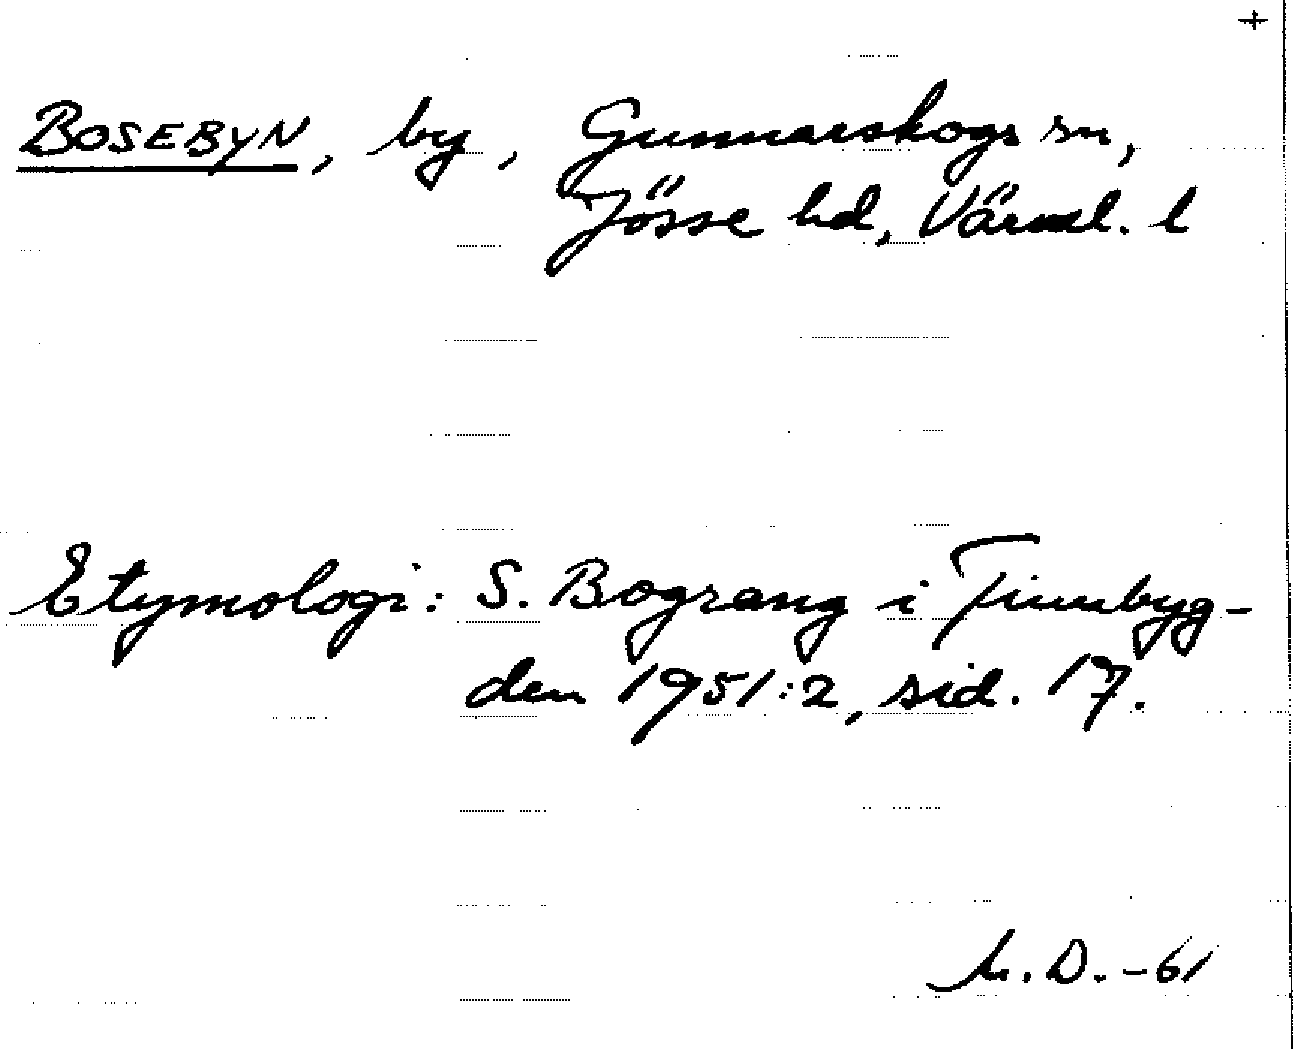 +
BOSEBYN, by, Gunnarskogs sn,
Jösse hd, Värml. l
Etymologi: S. Bograng i Finnbyg-
den 1951:2, sid. 17.
D. -61